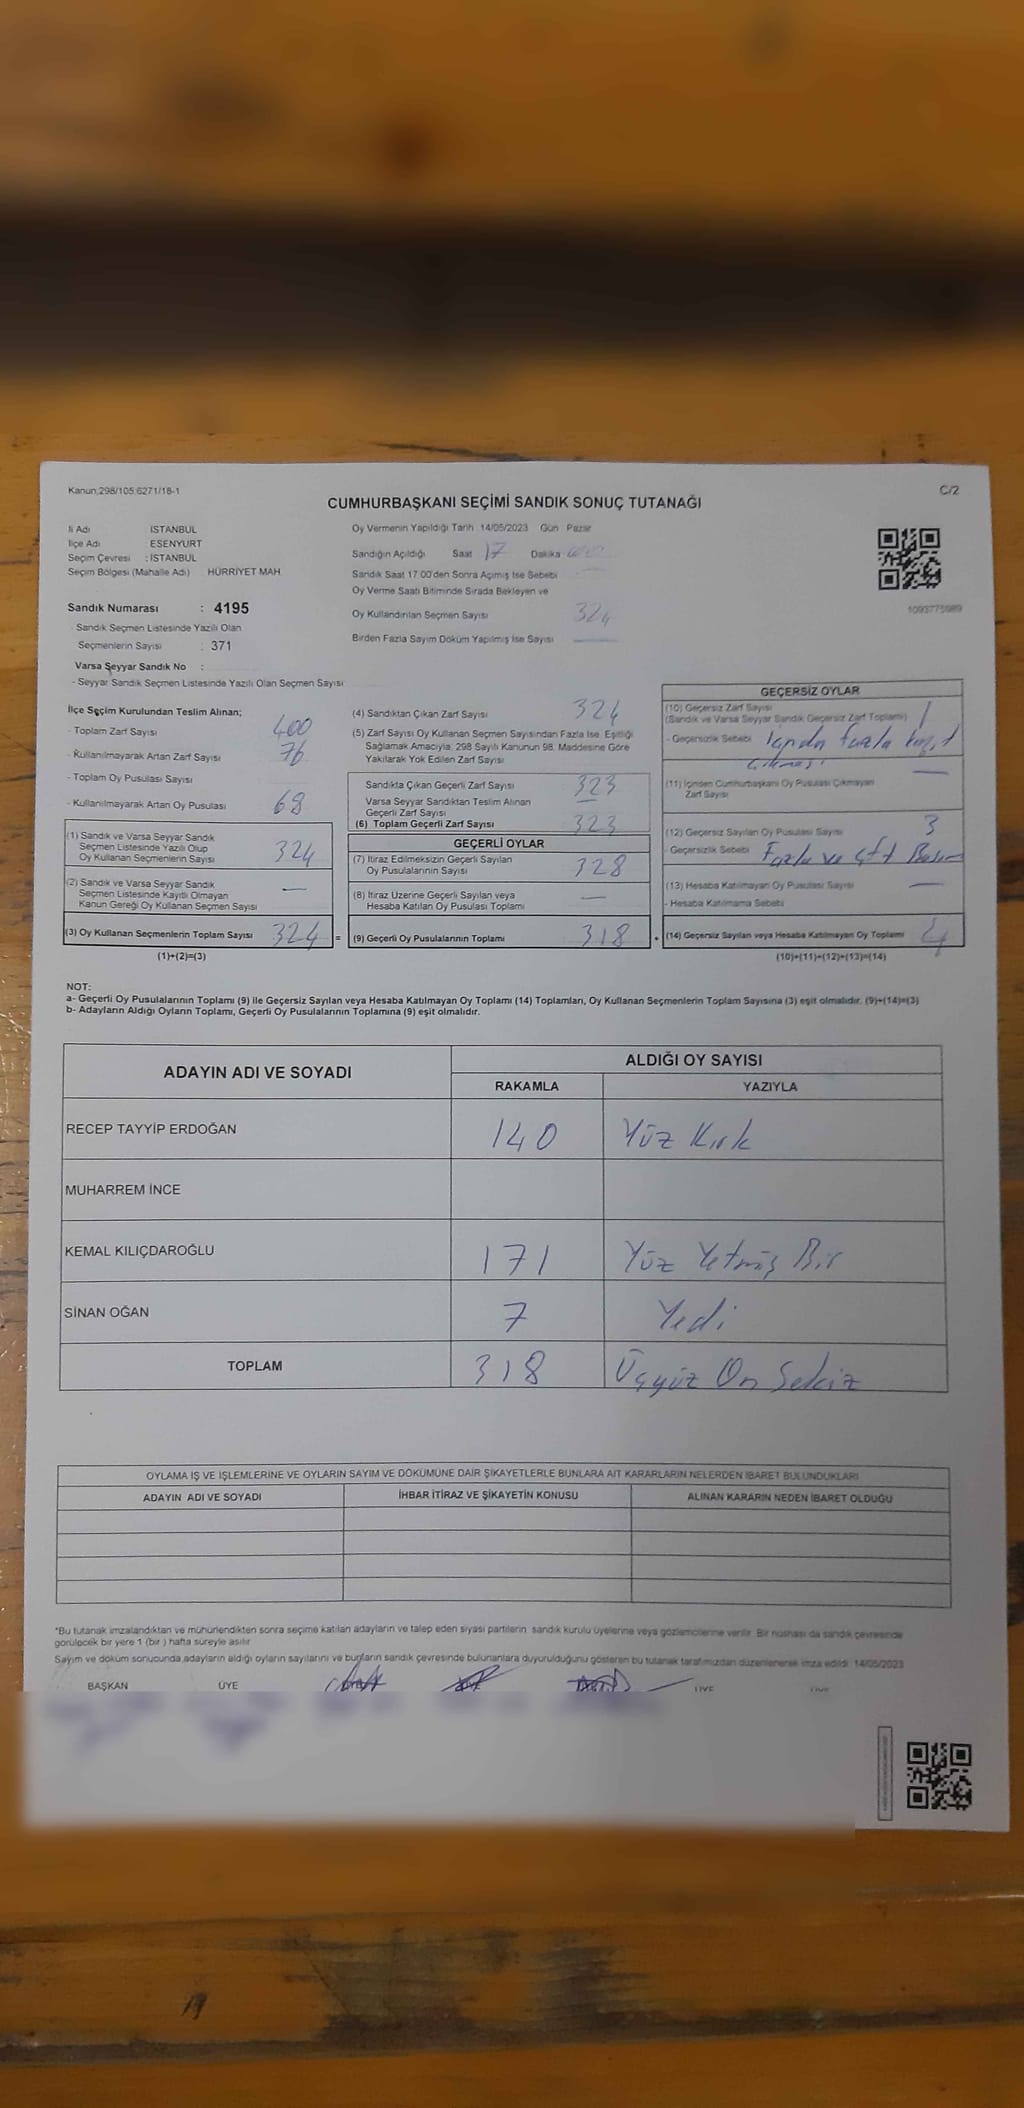 Kanun,298/105 6271/18-1
C/2
CUMHURBAŞKANI SEÇİMİ SANDIK SONUÇ TUTANAĞI
İli Adı İSTANBUL
İlçe Adı ESENYURT
Seçim Çevresi : İSTANBUL
Seçim Bölgesi (Mahalle Adı) HÜRRİYET MAH
Sandık Numarası : 4195
Sandık Seçmen Listesinde Yazılı Olan
Seçmenlerin Sayısı : 371
Varsa Seyyar Sandık No :
- Seyyar Sandık Seçmen Listesinde Yazılı Olan Seçmen Sayısı
Oy Vermenin Yapıldığı Tarih 14/05/2023 Gün Pazar
Sandığın Açıldığı Saat 17 Dakika
Sandık Saat 17 00'den Sonra Açılmış İse Sebebi
Oy Verme Saati Bitiminde Sırada Bekleyen ve
Oy Kullandırılan Seçmen Sayısı 324
Birden Fazla Sayım Döküm Yapılmış İse Sayısı
1093775989
İlçe Seçim Kurulundan Teslim Alınan;
- Toplam Zarf Sayısı 400
- Kullanılmayarak Artan Zarf Sayısı 76
- Toplam Oy Pusulası Sayısı
- Kullanılmayarak Artan Oy Pusulası 68
(1) Sandık ve Varsa Seyyar Sandık
Seçmen Listesinde Yazılı Olup
Oy Kullanan Seçmenlerin Sayısı 324
(2) Sandık ve Varsa Seyyar Sandık
Seçmen Listesinde Kayıtlı Olmayan
Kanun Gereği Oy Kullanan Seçmen Sayısı —
(3) Oy Kullanan Seçmenlerin Toplam Sayısı 324 =
(1)+(2)=(3)
(4) Sandıktan Çıkan Zarf Sayısı 324
(5) Zarf Sayısı Oy Kullanan Seçmen Sayısından Fazla İse, Eşitliği
Sağlamak Amacıyla, 298 Sayılı Kanunun 98. Maddesine Göre
Yakılarak Yok Edilen Zarf Sayısı
Sandıkta Çıkan Geçerli Zarf Sayısı 323
Varsa Seyyar Sandıktan Teslim Alınan
Geçerli Zarf Sayısı —
(6) Toplam Geçerli Zarf Sayısı 323
GEÇERLİ OYLAR
(7) İtiraz Edilmeksizin Geçerli Sayılan
Oy Pusulalarının Sayısı 328
(8) İtiraz Üzerine Geçerli Sayılan veya
Hesaba Katılan Oy Pusulası Toplamı —
(9) Geçerli Oy Pusulalarının Toplamı 318 +
GEÇERSİZ OYLAR
(10) Geçersiz Zarf Sayısı
(Sandık ve Varsa Seyyar Sandık Geçersiz Zarf Toplamı) 1
- Geçersizlik Sebebi fazla
çıkması
(11) İçinden Cumhurbaşkanı Oy Pusulası Çıkmayan
Zarf Sayısı —
(12) Geçersiz Sayılan Oy Pusulası Sayısı 3
- Geçersizlik Sebebi Fazla ve çift Basım
(13) Hesaba Katılmayan Oy Pusulası Sayısı —
- Hesaba Katılmama Sebebi
(14) Geçersiz Sayılan veya Hesaba Katılmayan Oy Toplamı 4
(10)+(11)+(12)+(13)=(14)
NOT:
a- Geçerli Oy Pusulalarının Toplamı (9) ile Geçersiz Sayılan veya Hesaba Katılmayan Oy Toplamı (14) Toplamları, Oy Kullanan Seçmenlerin Toplam Sayısına (3) eşit olmalıdır. (9)+(14)=(3)
b- Adayların Aldığı Oyların Toplamı, Geçerli Oy Pusulalarının Toplamına (9) eşit olmalıdır.
ADAYIN ADI VE SOYADI
ALDIĞI OY SAYISI
RAKAMLA YAZIYLA
RECEP TAYYİP ERDOĞAN 140 Yüz Kırk
MUHARREM İNCE
KEMAL KILIÇDAROĞLU 171 Yüz Yetmiş Bir
SİNAN OĞAN 7 Yedi
TOPLAM 318 Üçyüz On Sekiz
OYLAMA İŞ VE İŞLEMLERİNE VE OYLARIN SAYIM VE DÖKÜMÜNE DAİR ŞİKAYETLERLE BUNLARA AİT KARARLARIN NELERDEN İBARET BULUNDUKLARI
ADAYIN ADI VE SOYADI İHBAR İTİRAZ VE ŞİKAYETİN KONUSU ALINAN KARARIN NEDEN İBARET OLDUĞU
*Bu tutanak imzalandıktan ve mühürlendikten sonra seçime katılan adayların ve talep eden siyasi partilerin sandık kurulu üyelerine veya gözlemcilerine verilir. Bir nüshası da sandık çevresinde
görülecek bir yere 1 (bir ) hafta süreyle asılır
Sayım ve döküm sonucunda adayların aldığı oyların sayılarını ve bunların sandık çevresinde bulunanlara duyurulduğunu gösteren bu tutanak tarafımızdan düzenlenerek imza edildi. 14/05/2023
BAŞKAN ÜYE ÜYE ÜYE